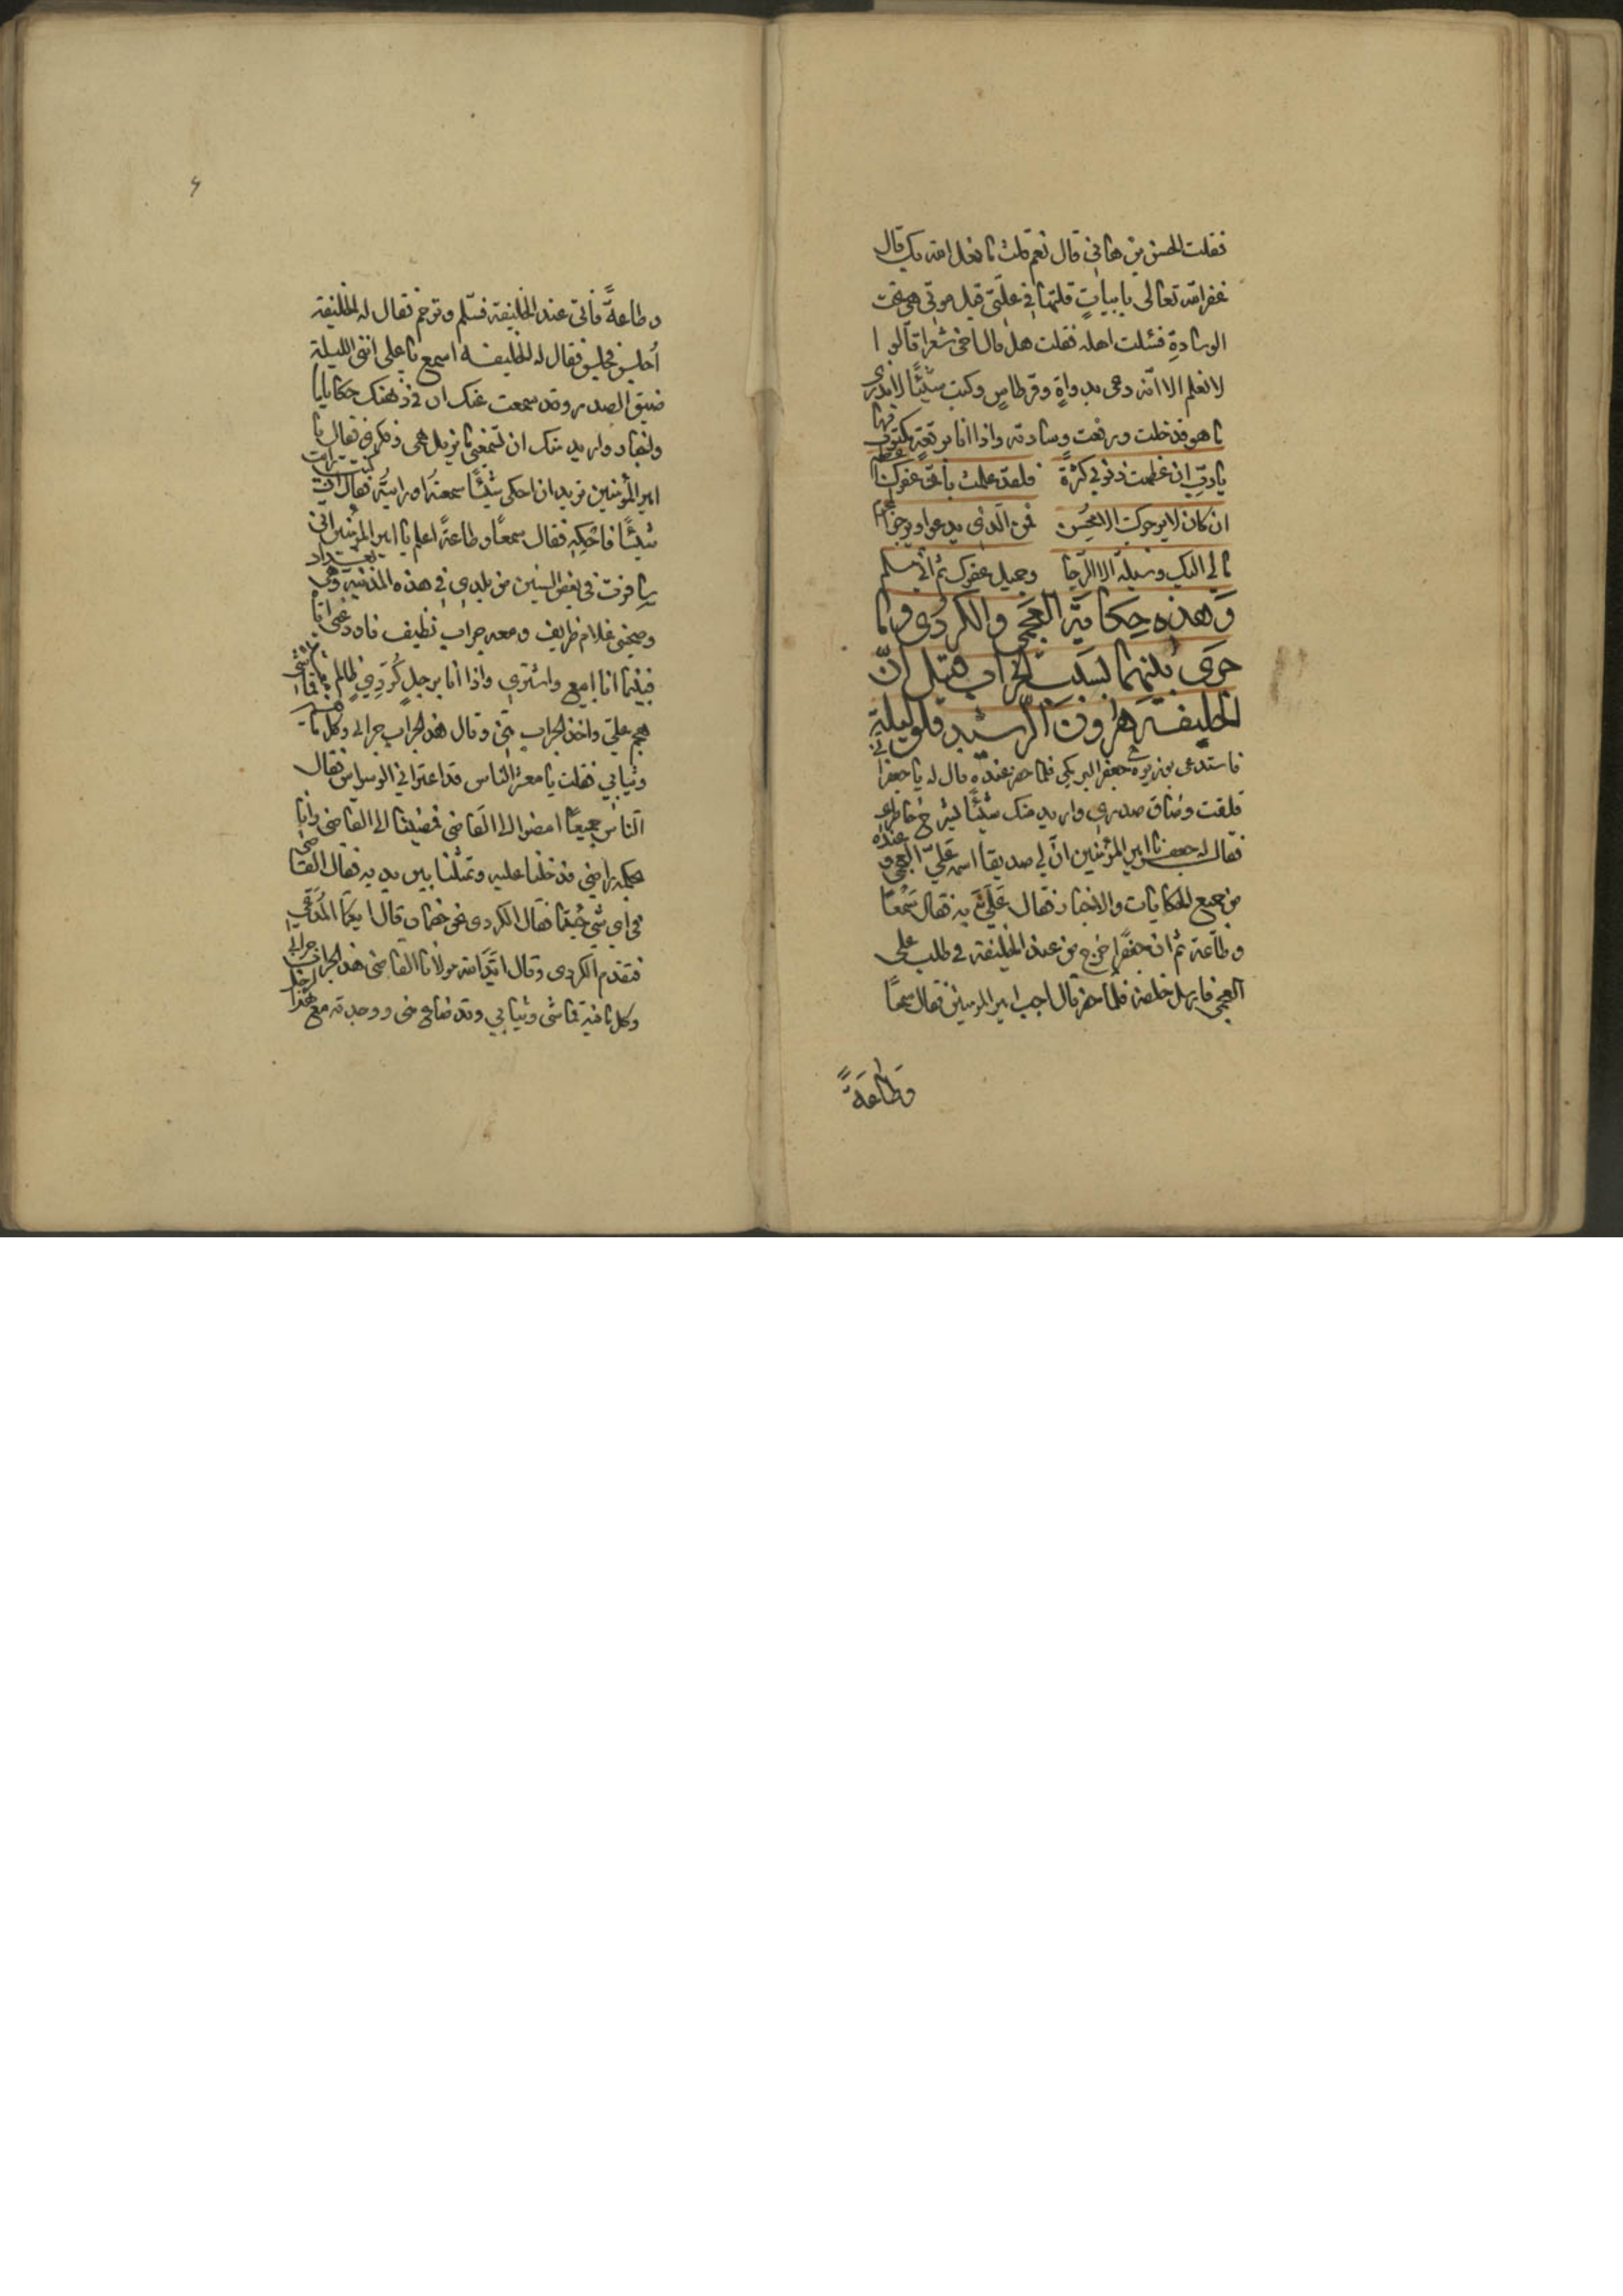 فقلت الحسن بن هاني قال نعم قلت ما فعل الله بك قال
غفر الله تعالى بابيات قلتها في علتي قبل موتي هي تحت
الوسادة فسئلت اهله فقلت هل قال اخي شعرا قالوا
لا نعلم الا انه دعى بدواة وقرطاس وكتب شيئا لا ندري
ما هو فدخلت ورفعت وسادته واذا انا برقعة مكتوب فيها
يا رب ان عظمت ذنوبي كثرة فلقد علمت بان عفوك اعظم
ان كان لا يرجوك الا محسن فمن الذي يدعوا ويرجوا المجرم
ما لي اليك وسيلة الا الرجا وجميل عفوك ثم اني مسلم
وهذه حكاية العجمي والكردي وما
جرى بينهما بسبب الجراب قيل ان
الخليفة هارون الرشيد قلق ليلة
فاستدعى بوزيره جعفر البرمكي فلما حضر عنده قال له يا جعفر اني
قلقت وضاق صدري واريد منك شيئا يشرح خاطري
فقال له جعفر يا امير المؤمنين ان لي صديقا اسمه علي العجمي وعنده
من جميع الحكايات والاخبار فقال علي به فقال سمعا
وطاعة ثم ان جعفرا خرج من عند الخليفة في طلب علي
العجمي فارسل خلفه فلما حضر قال اجب امير المومنين فقال سمعا
وطاعة
وطاعة فأتى عند الخليفة فسلم وترحم فقال له الخليفة
اجلس فجلس فقال له الخليفة اسمع يا علي انني الليلة
ضيق الصدر وقد سمعت عنك ان في ذهنك حكايايا
واخبار واريد منك ان تسمعني ما يزيل همي وفكري فقال يا
امير المؤمنين تريد ان احكي شيئا سمعته او رايته فقال ان كنت رايت
شيئا فاحكه فقال سمعا وطاعة اعلم يا امير المؤمنين اني
سافرت في بعض السنين من بلدي في هذه المدينة وهي بغداد
وصحبني غلام ظريف ومعه جراب نظيف فاودعني اياه
فبينما انا ابيع واشتري واذا انا برجل كردي ظالم
هجم علي واخذ الجراب مني وقال هذا الجراب جرابي وكل ما فيه قماشي
وثيابي فقلت يا معشر الناس قد اعتراني الوسواس فقال
الناس جميعا امضوا الى القاضي فمضينا الى القاضي وانا
بحكمه راضي فدخلنا عليه وتمثلنا بين يديه فقال القاضي
في اي شي جيتما فقال الكردي نحن خصمان قال ايكما المدعي
فتقدم الكردي وقال ايد الله مولانا القاضي هذا الجراب جرابي
وكل ما فيه قماشي وثيابي وقد ضاع مني ووجدته مع هذا الرجل